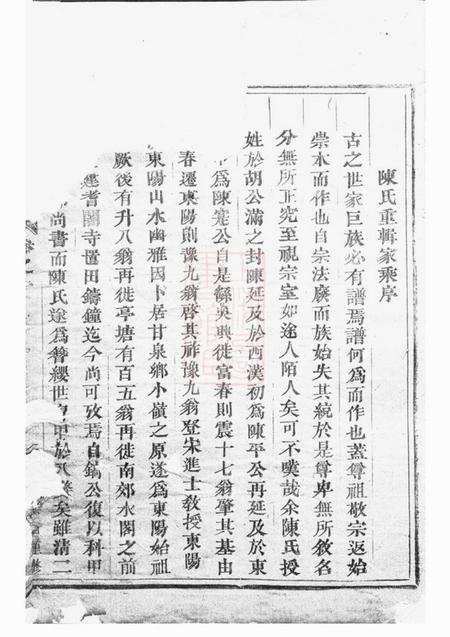 陳氏重輯家乘序
古之世家巨族必有譜焉譜何為而作也蓋尊祖敬宗返始
崇本而作也自宗法廢而族始失其統於是尊卑無所敘名
分無所正究至視宗室如途人陌人矣可不嘆哉余陳氏授
姓於胡公滿之封陳延及於西漢初為陳平公再延及於東
為陳寔公自是繇吳興徙富春則震十七翁肇其基由
春遷東陽則豫九翁啓其祚豫九翁登宋進士敎授東陽
東陽山水幽雅因卜居甘泉鄉小嶺之原遂為東陽始祖
厥後有升八翁再徙亭塘有百五翁再徙南郊水閣之前
建耆闍寺置田鑄鐘迄今尚可攷焉自鎬公復以科甲
尚書而陳氏遂為簪纓世甲於矣雖清二